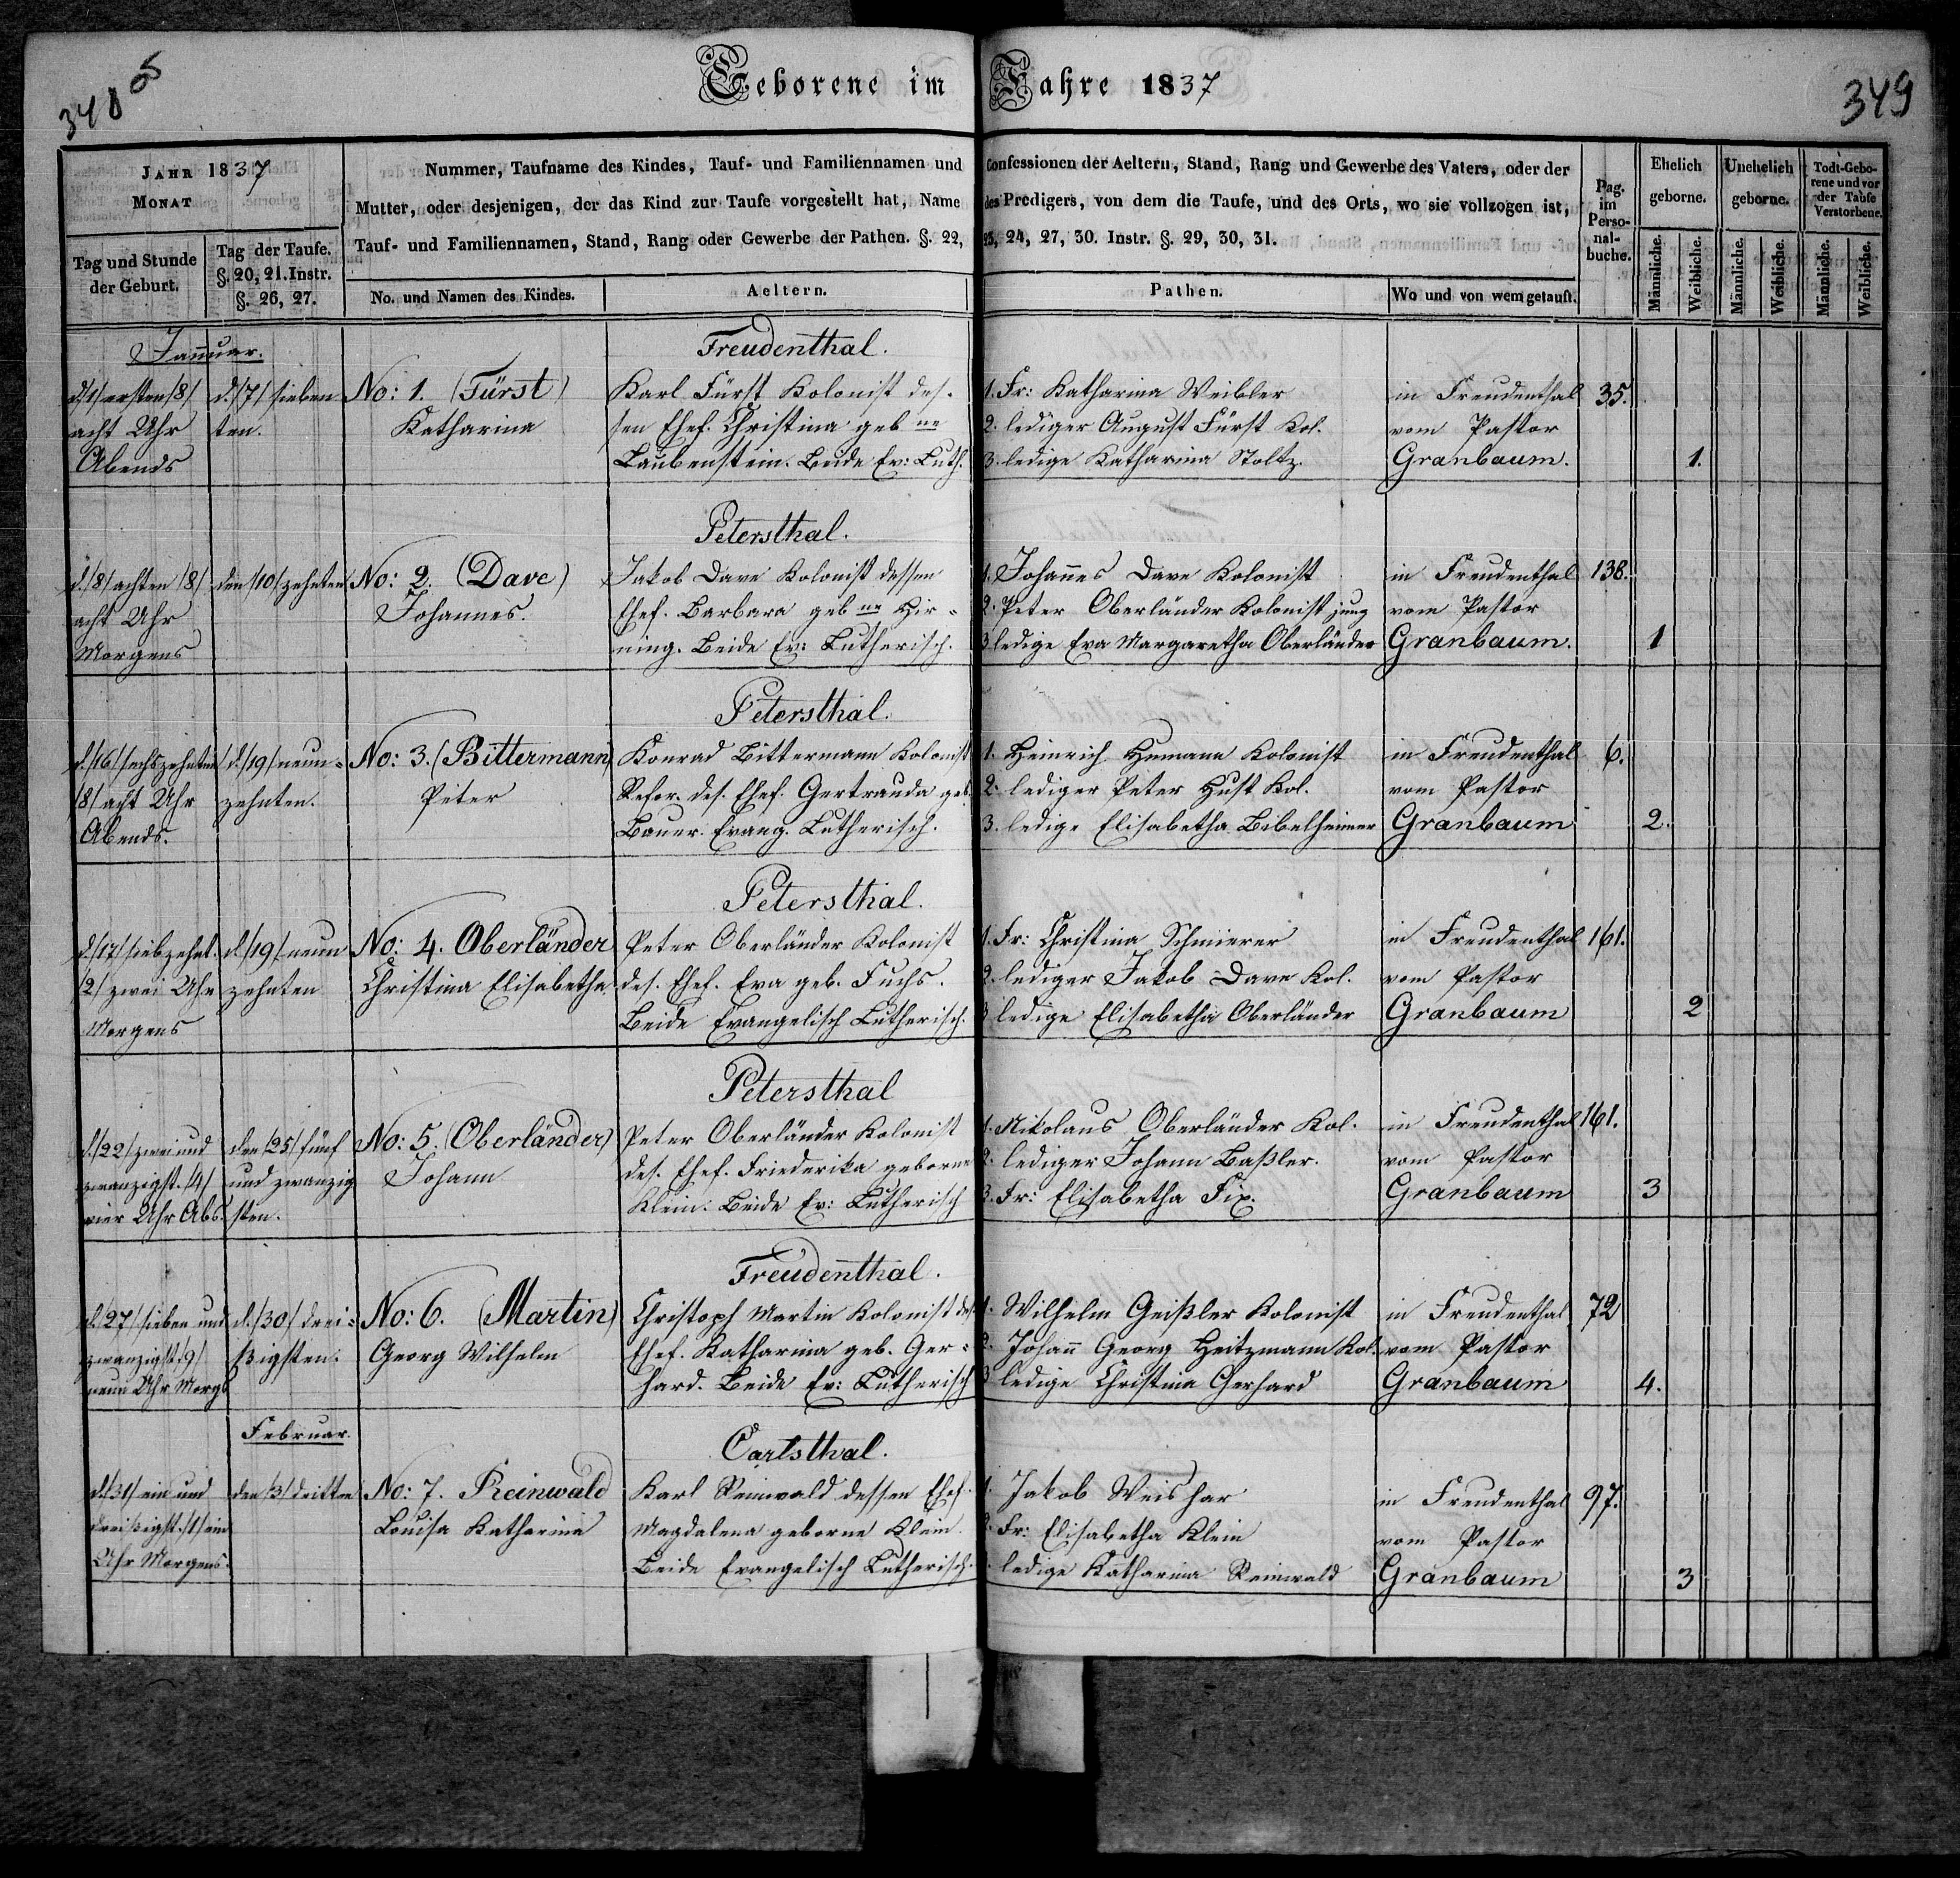 348
Geborene im Jahre 1837
349
JAHR 1837
MONAT
Tag und Stunde
der Geburt.
Tag der Taufe.
§. 20, 21. Instr.
§. 26, 27.
Nummer, Taufname des Kindes, Tauf- und Familiennamen und
Mutter, oder desjenigen, der das Kind zur Taufe vorgestellt hat, Name
Tauf- und Familiennamen, Stand, Rang oder Gewerbe der Pathen. §. 22,
No. und Namen des Kindes.
Aeltern.
Confessionen der Aeltern, Stand, Rang und Gewerbe des Vaters, oder der
des Predigers, von dem die Taufe, und des Orts, wo sie vollzogen ist,
23, 24, 27, 30. Instr. §. 29, 30, 31.
Pathen.
Wo und von wem getauft.
Pag.
im
Perso-
nal-
buche.
Ehelich
geborne.
Unehelich
geborne.
Todt-Gebo-
rene und vor
der Taufe
Verstorbene.
Männliche.
Weibliche.
Männliche.
Weibliche.
Männliche.
Weibliche.
Januar.
d /1/ ersten /8/
acht Uhr
Abends
d. /7/ sieben
ten.
No: 1. (Fürst)
Katharina
Freudenthal.
Karl Fürst Kolonist des-
sen Ehef. Christina geb ne
Laubenstein. Beide Ev: Luth.
1. Fr: Katharina Weibler
2. lediger August Fürst Kol.
3. ledige Katharina Stoltz.
in Freudenthal
vom Pastor
Granbaum.
35.
1.
d. /8/ achten /8/
acht Uhr
Morgens
den /10/ zehnten
No: 2. (Dave)
Johannes.
Petersthal.
Jakob Dave Kolonist dessen
Ehef. Barbara geb ne Hir-
ning. Beide Ev: Lutherisch.
1. Johannes Dave Kolonist
2. Peter Oberländer Kolonist jung
3 ledige Eva Margaretha Oberländer
in Freudenthal
vom Pastor
Granbaum.
138.
1
d. /16/ sechszehnten
/8/ acht Uhr
Abends.
d. /19/ neun-
zehnten.
No: 3. (Bittermann)
Peter
Petersthal.
Konrad Bittermann Kolonist
Refor. des. Ehef. Gertrauda geb.
Bauer. Evang. Lutherisch.
1. Heinrich Humann Kolonist
2. lediger Peter Hust Kol.
3. ledige Elisabetha Bibelheimer
in Freudenthal
vom Pastor
Granbaum
6.
2.
d. /17/ siebzehnt.
/2/ zwei Uhr
Morgens
d. /19/ neun
zehnten
No: 4. Oberländer
Christina Elisabetha
Petersthal.
Peter Oberländer Kolonist
des. Ehef. Eva geb. Fuchs.
Beide Evangelisch Lutherisch.
1. Fr: Christina Schmierer
2. lediger Jakob Dave Kol.
3 ledige Elisabetha Oberländer
in Freudenthal
vom Pastor
Granbaum
161.
2
d. /22/ zwei und
zwanzigst. /4/
vier Uhr Abs.
den /25/ fünf
und zwanzig
sten.
No: 5. (Oberländer)
Johann
Petersthal
Peter Oberländer Kolonist
des. Ehef. Friederika geborne
Klein. Beide Ev: Lutherisch
1. Nikolaus Oberländer Kol.
2. lediger Johann Baßler.
3. Fr: Elisabetha Fix.
in Freudenthal
vom Pastor
Granbaum
161.
3
d. /27/ sieben und
zwanzigst. /9/
neun Uhr Morgs
d. /30/ drei-
ßigsten.
No: 6. (Martin)
Georg Wilhelm
Freudenthal.
Christoph Martin Kolonist des.
Ehef. Katharina geb. Ger-
hard. Beide Ev: Lutherisch
1. Wilhelm Geißler Kolonist
2. Johann Georg Heitzmann Kol.
3 ledige Christina Gerhard
in Freudenthal
vom Pastor
Granbaum
72
4.
Februar.
d. /31/ ein und
dreißigst. /1/ ein
Uhr Morgens.
den /3/ dritten
No: 7. Reinwald
Louisa Katharina
Carlsthal.
Karl Reinwald dessen Ehef.
Magdalena geborne Klein.
Beide Evangelisch Lutherisch.
1. Jakob Weishar
2. Fr: Elisabetha Klein
ledige Katharina Reinwald
in Freudenthal
vom Pastor
Granbaum
97.
3